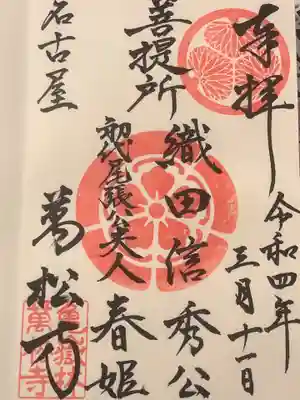 奉拝
令和四年
三月十一日
菩提所
織田信秀公
初代尾張公夫人
春姫
名古屋
萬松寺
亀嶽林
萬松寺